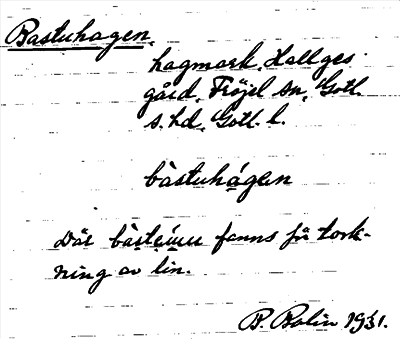 Bastuhagen.
hagmark, Hallges
gård, Fröjel sn, Gotl.
s. hd, Gotl. l.
bàstuhágen
Där bàstèúnu fanns för tork-
ning av lin.
B. Bolin 1931.